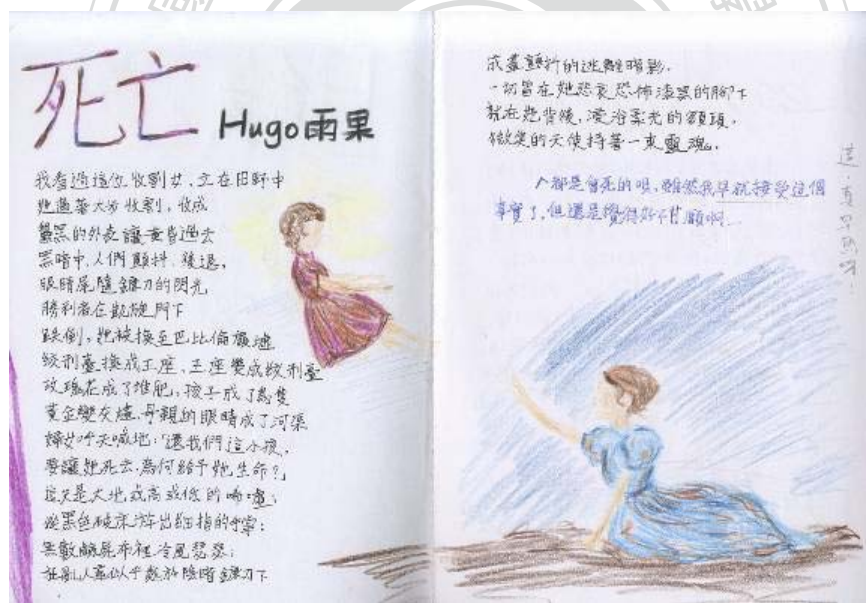 死亡
Hugo雨果
我看過這位收割女，立在田野中
她邁著大步收割，收成
黑的外表讓黃昏過去
黑暗中，人們顫抖、後退，
眼睛尾隨鐮刀的閃光
勝利者在凱旋門下
跌倒，她被換至巴比倫廢墟
絞刑臺換成王座，王座變成絞刑臺
玫瑰花成了堆肥，孩子成了鳥隻
黃金變灰燼，母親的眼睛成了河渠
婦女呼天喊地：「還我們這小孩，
要讓她死去，為何給予她生命？」
這只是大地或高或低的嗚噎；
從黑色破床浮出細指的手掌；
無數麻屍布裡冷風瑟瑟；
人羣似乎於陰暗鐮刀下
成羣顫抖的逃離暗影，
一切皆在她悲哀恐怖漆黑的腳下
就在她背後，浸浴柔光的額頭，
微笑的天使持著一束靈魂。
人都是會死的吧，雖然我早就接受這個
事實了，但還是覺得好不甘願啊…
這，真早熟呀！